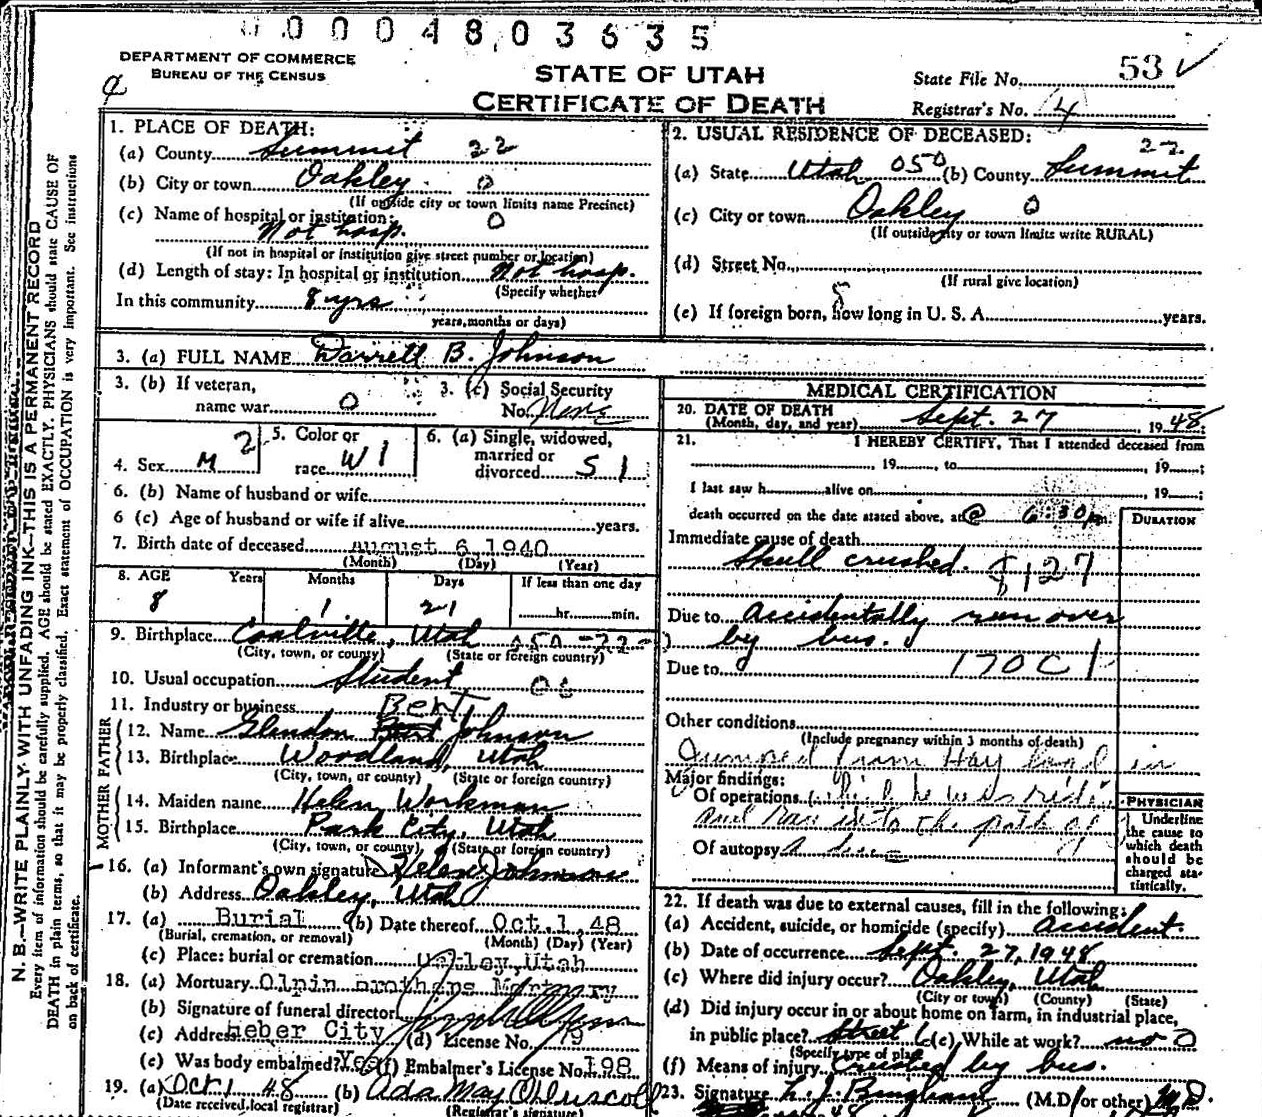 00048,03635
DEPARTMENT OF COMMERCE
BUREAU OF THE CENSUS
STATE OF UTAH
CERTIFICATE OF DEATH
State File No. 53 ✓
Registrar's No. 14
N. B.—WRITE PLAINLY WITH UNFADING INK—THIS IS A PERMANENT RECORD
Every item of information should be carefully supplied. AGE should be stated EXACTLY. PHYSICIANS should state CAUSE OF
DEATH in plain terms, so that it may be properly classified. Exact statement of OCCUPATION is very important. See instructions
on back of certificate.
1. PLACE OF DEATH:
(a) County Summit 22
(b) City or town Oakley 0
(If outside city or town limits name Precinct)
(c) Name of hospital or institution: 0
Not hosp.
(If not in hospital or institution give street number or location)
(d) Length of stay: In hospital or institution Not hosp.
(Specify whether
In this community 8 yrs
years, months or days)
2. USUAL RESIDENCE OF DECEASED:
22
(a) State Utah 050 (b) County Summit
(c) City or town Oakley 0
(If outside city or town limits write RURAL)
(d) Street No.
(If rural give location)
(e) If foreign born, how long in U. S. A. years.
3. (a) FULL NAME Darrell B. Johnson
3. (b) If veteran,
name war 0
3. (c) Social Security
No. None
4. Sex M 2
5. Color or
race W 1
6. (a) Single, widowed,
married or
divorced S 1
6. (b) Name of husband or wife
6 (c) Age of husband or wife if alive years.
7. Birth date of deceased August 6, 1940
(Month) (Day) (Year)
8. AGE Years Months Days If less than one day
8 1 21 hr. min.
9. Birthplace Coalville, Utah 050-22-
(City, town, or county) (State or foreign country)
10. Usual occupation Student
11. Industry or business
Bert
MOTHER FATHER
12. Name Glendon Johnson
13. Birthplace Woodland, Utah
(City, town, or county) (State or foreign country)
14. Maiden name Helen Workman
15. Birthplace Park City, Utah
(City, town, or county) (State or foreign country)
16. (a) Informant's own signature Helen Johnson
(b) Address Oakley, Utah
17. (a) Burial (b) Date thereof Oct.1,48
(Burial, cremation, or removal) (Month) (Day) (Year)
(c) Place: burial or cremation Oakley,Utah
18. (a) Mortuary Olpin Brothers Mortuary
(b) Signature of funeral director
(c) Address Heber City (d) License No. 79
(e) Was body embalmed? Yes (f) Embalmer's License No. 198
19. (a) Oct 1 48 (b) Ada May O'Driscoll
(Date received local registrar) (Registrar's signature)
MEDICAL CERTIFICATION
20. DATE OF DEATH
(Month, day, and year) Sept. 27, 1948
21. I HEREBY CERTIFY, That I attended deceased from
, 19 , to , 19 ;
I last saw h alive on , 19 ;
death occurred on the date stated above, at @ 6:30 pm.
DURATION
Immediate cause of death
Skull crushed.
Due to Accidentally run over
by bus.
Due to 170C 1
Other conditions
(Include pregnancy within 3 months of death)
Jumped from Hay load in
Major findings:
Of operations which he was riding
and ran into the path of
Of autopsy a bus
PHYSICIAN
Underline
the cause to
which death
should be
charged sta-
tistically.
22. If death was due to external causes, fill in the following:
(a) Accident, suicide, or homicide (specify) Accident.
(b) Date of occurrence Sept. 27, 1948
(c) Where did injury occur? Oakley, Utah
(City or town) (County) (State)
(d) Did injury occur in or about home on farm, in industrial place,
in public place? Street (e) While at work? no
(Specify type of place)
(f) Means of injury Crushed by bus.
23. Signature (M.D. or other) M.D.